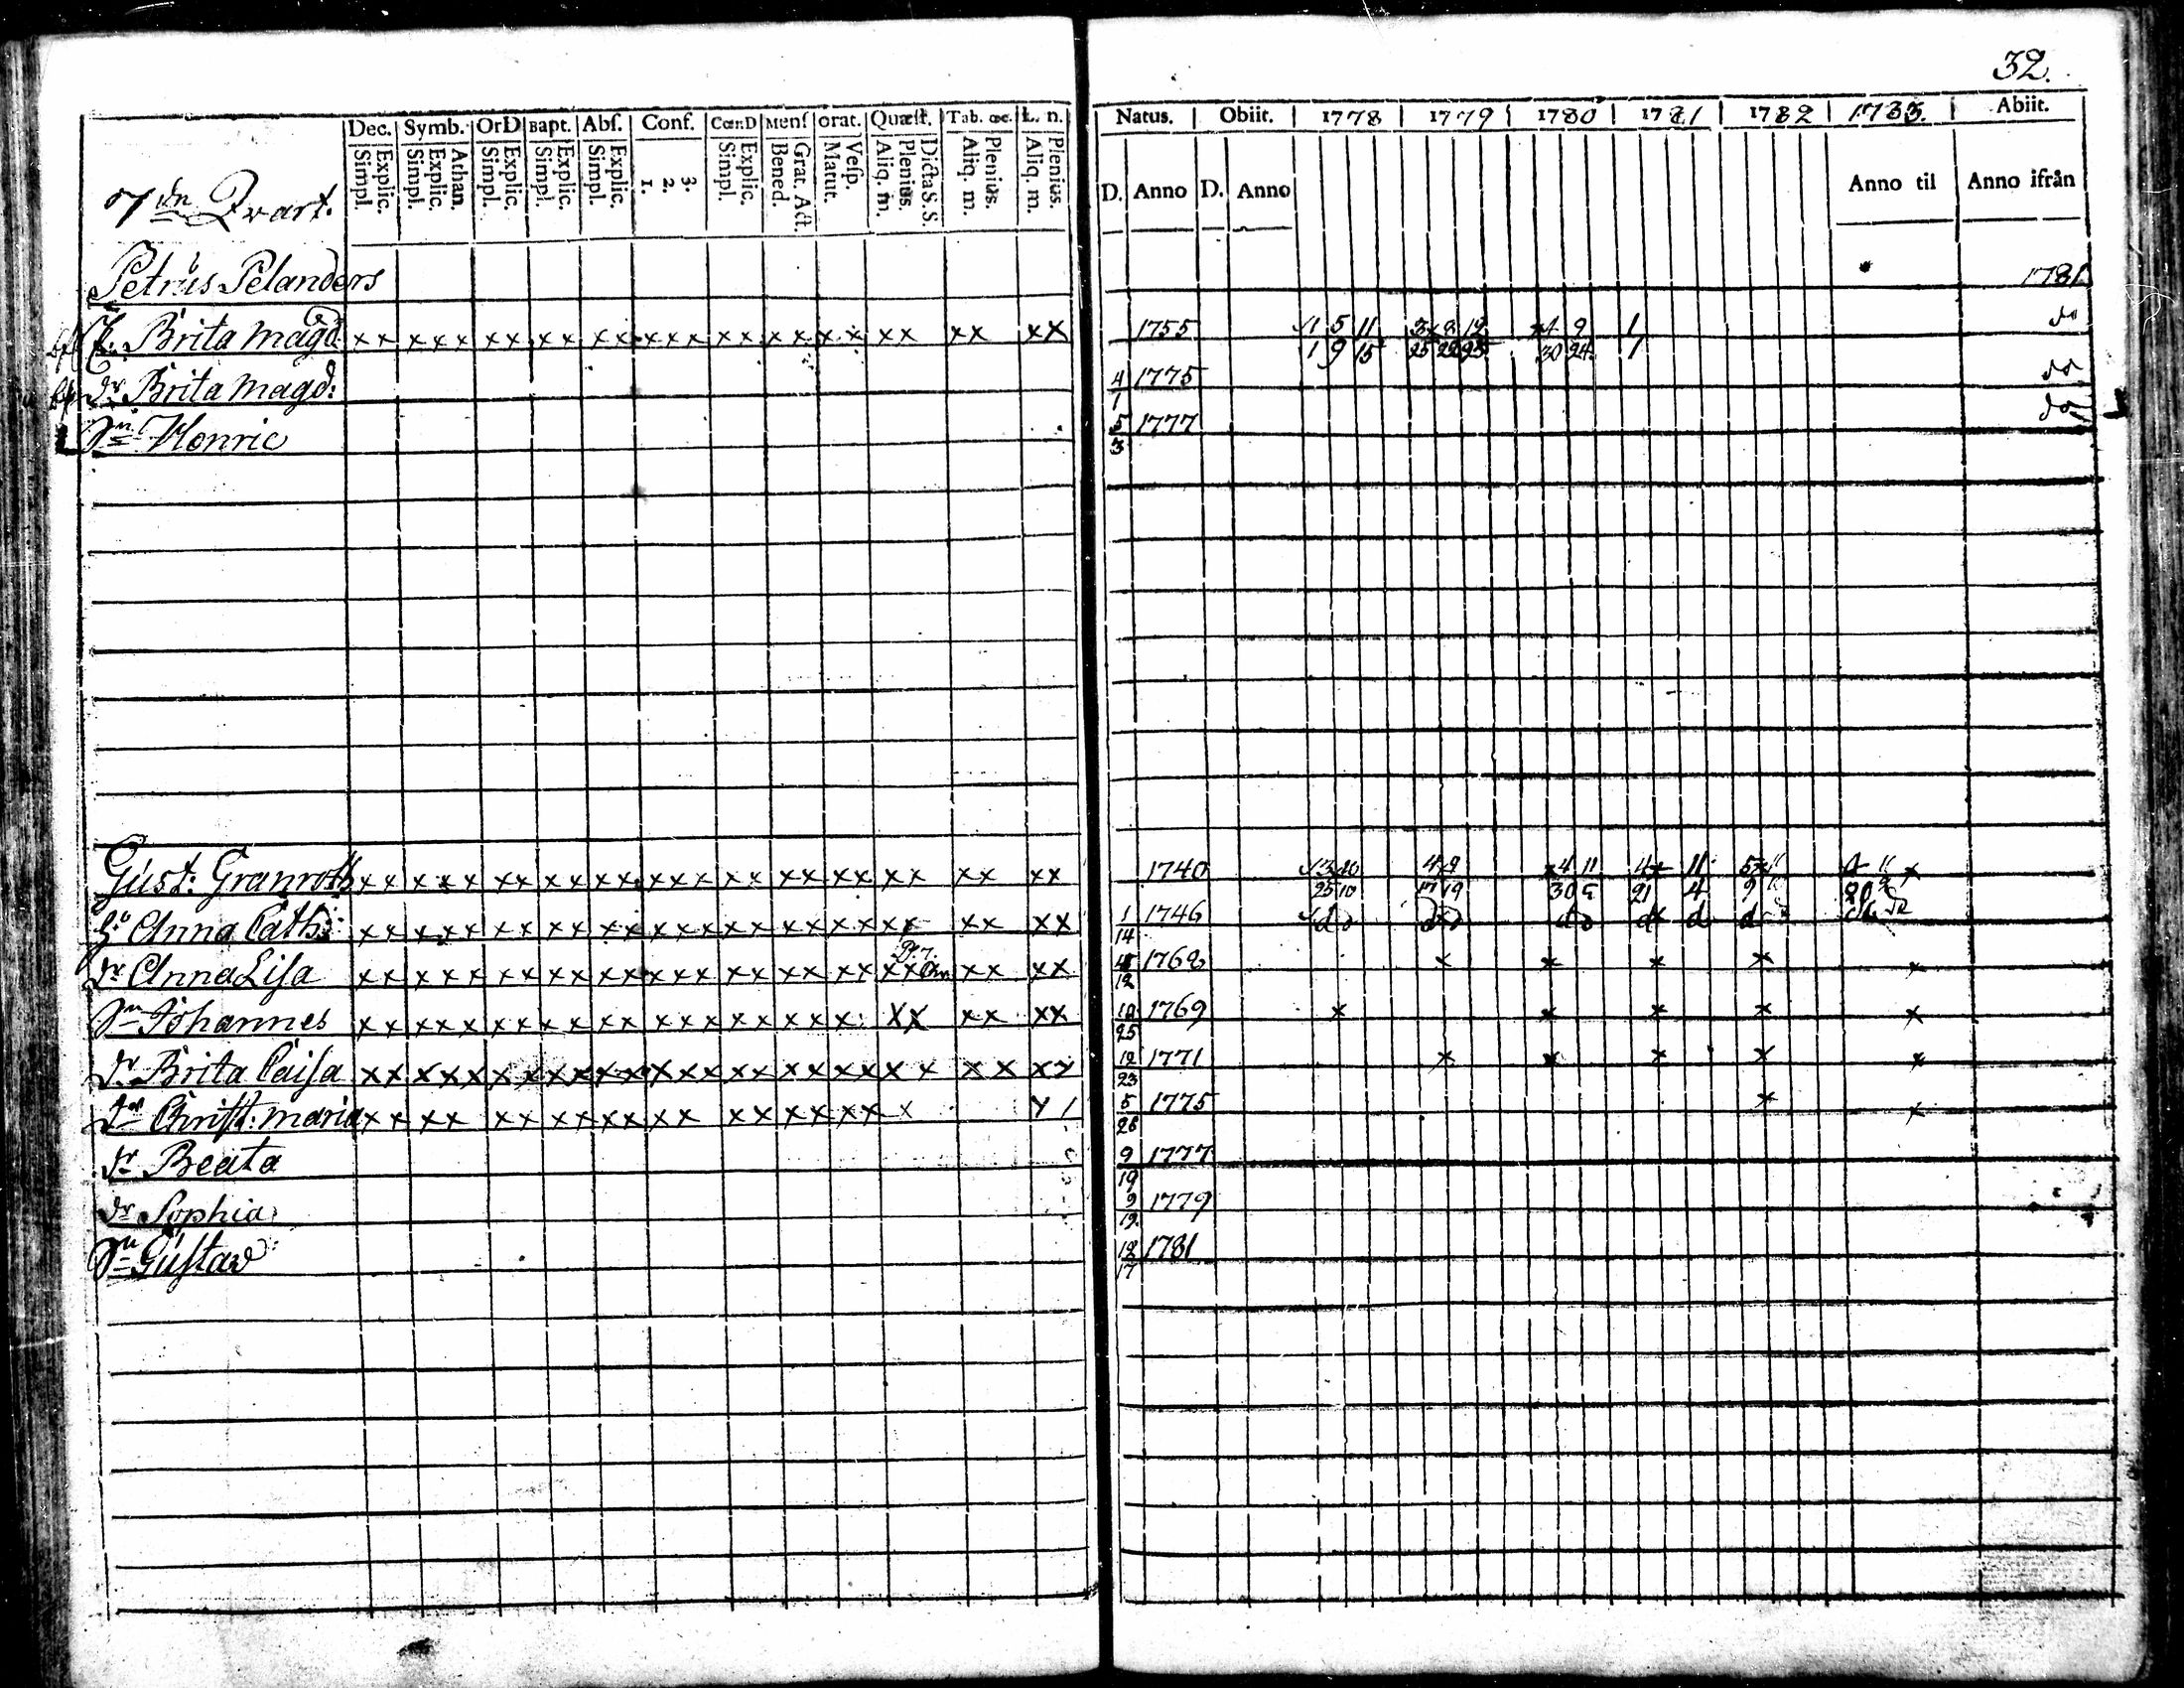 32.
Dec. Symb. OrD Bapt. Abſ. Conf. Cœn.D Menſ orat. Quæſt. Tab. œc. L. n. Natus. Obiit. 1778 1779 1780 1781 1782 1783. Abiit.
Simpl. Explic. Simpl. Explic. Athan. Simpl. Explic. Simpl. Explic. Simpl. Explic. 1. 2. 3. Simpl. Explic. Bened. Grat. Act. Matut. Veſp. Aliq. m. Plenius. Dicta S. S. Aliq. m. Plenius. Aliq. m. Plenius. D. Anno D. Anno Anno til Anno ifrån
7de Qvart.
Petrus Pelanders 1781
Brita Magd: x x x x x x x x x x x x x x x x x x x x x x x x x x 1755 1 5 11 3 8 12 4 9 1 do
1 9 15 25 22 25 30 24 1
dr Brita Magd: 4/1 1775 do
Sn Henric 5/3 1777 do
Gust: Granroth x x x x x x x x x x x x x x x x x x x x x x x x x x 1740 3 10 4 9 4 11 4 11 5 11
25 10 17 19 30 5 21 4 9
Anna Cath: x x x x x x x x x x x x x x x x x x x x x x x x x x 1/14 1746 do do do d d d
dr Anna Liſa x x x x x x x x x x x x x x x x x x x x x x x x x x 1768 x x x x x
Sn Johannes x x x x x x x x x x x x x x x x x x x x x x x x x 10/25 1769 x x x x x
dr Brita Caiſa x x x x x x x x x x x x x x x x x x x x x x x x x x 12/23 1771 x x x x x
dr Chriſt: maria x x x x x x x x x x x x x x x x x x x 5/26 1775 x x
dr Beata 9/19 1777
dr Sophia 9/19 1779
Sn Guſtav 12/17 1781